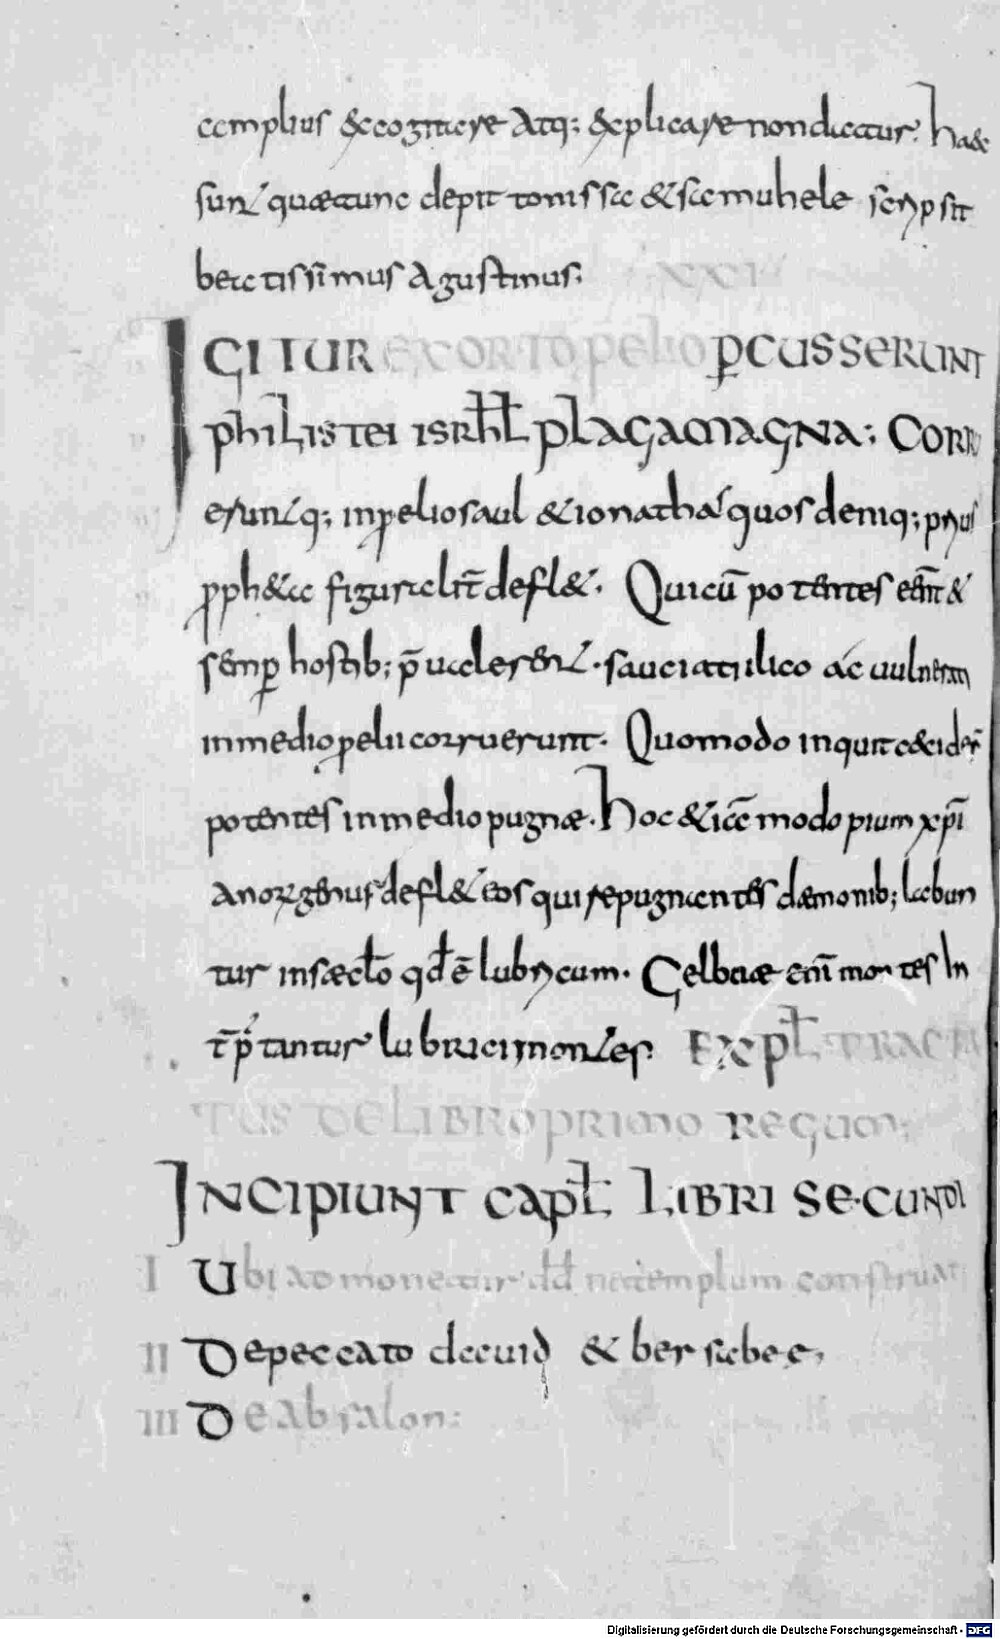 amplius & cogitare atq; explicare non dicatur. haec
sunt quae tunc de pitonissa & samuhele scripsit
beatissimus agustinus.
XXI
IGITUR EXORTO pelio pCUSSERUNT
philistei isrhl plaga magna: CORRU
eruntq; in pelio saul & ionathas quos deniq; prius
pph&a figuralit defl&. Qui cū potentes eant &
semp hostib; pualerent. sauciati ilico ac uulnerati
in medio pelii corruerunt. Quomodo inquit cecider
potentes in medio pugnae. hoc &iā modo pium xpi
anorū genus defl& eos qui repugnantes daemonib; labun
tur in saeclo qd ē lubricum. Gelboae eni montes In
tptantur lubrici montes. EXPL TRACTA
TUS DE LIBRO PRIMO REGUM;
INCIPIUNT CAPL LIBRI SECUNDI
I Ubi admonetur dd ne templum construat
II De peccato dauid & bersabee.
III De absalon:
Digitalisierung gefördert durch die Deutsche Forschungsgemeinschaft - DFG